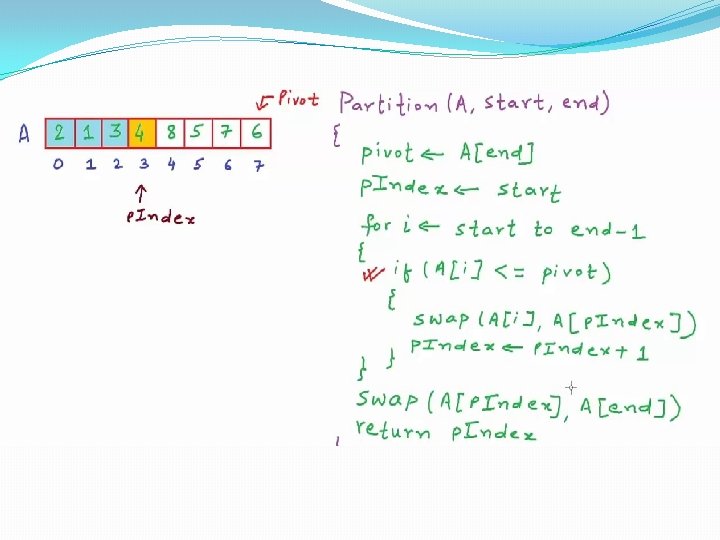 Pivot
A 2 1 3 4 8 5 7 6
0 1 2 3 4 5 6 7
PIndex
Partition (A, start, end)
{
pivot ← A[end]
PIndex ← start
for i ← start to end-1
{
if (A[i] <= pivot)
{
swap (A[i], A[PIndex])
PIndex ← PIndex + 1
}
}
swap (A[PIndex], A[end])
return pIndex